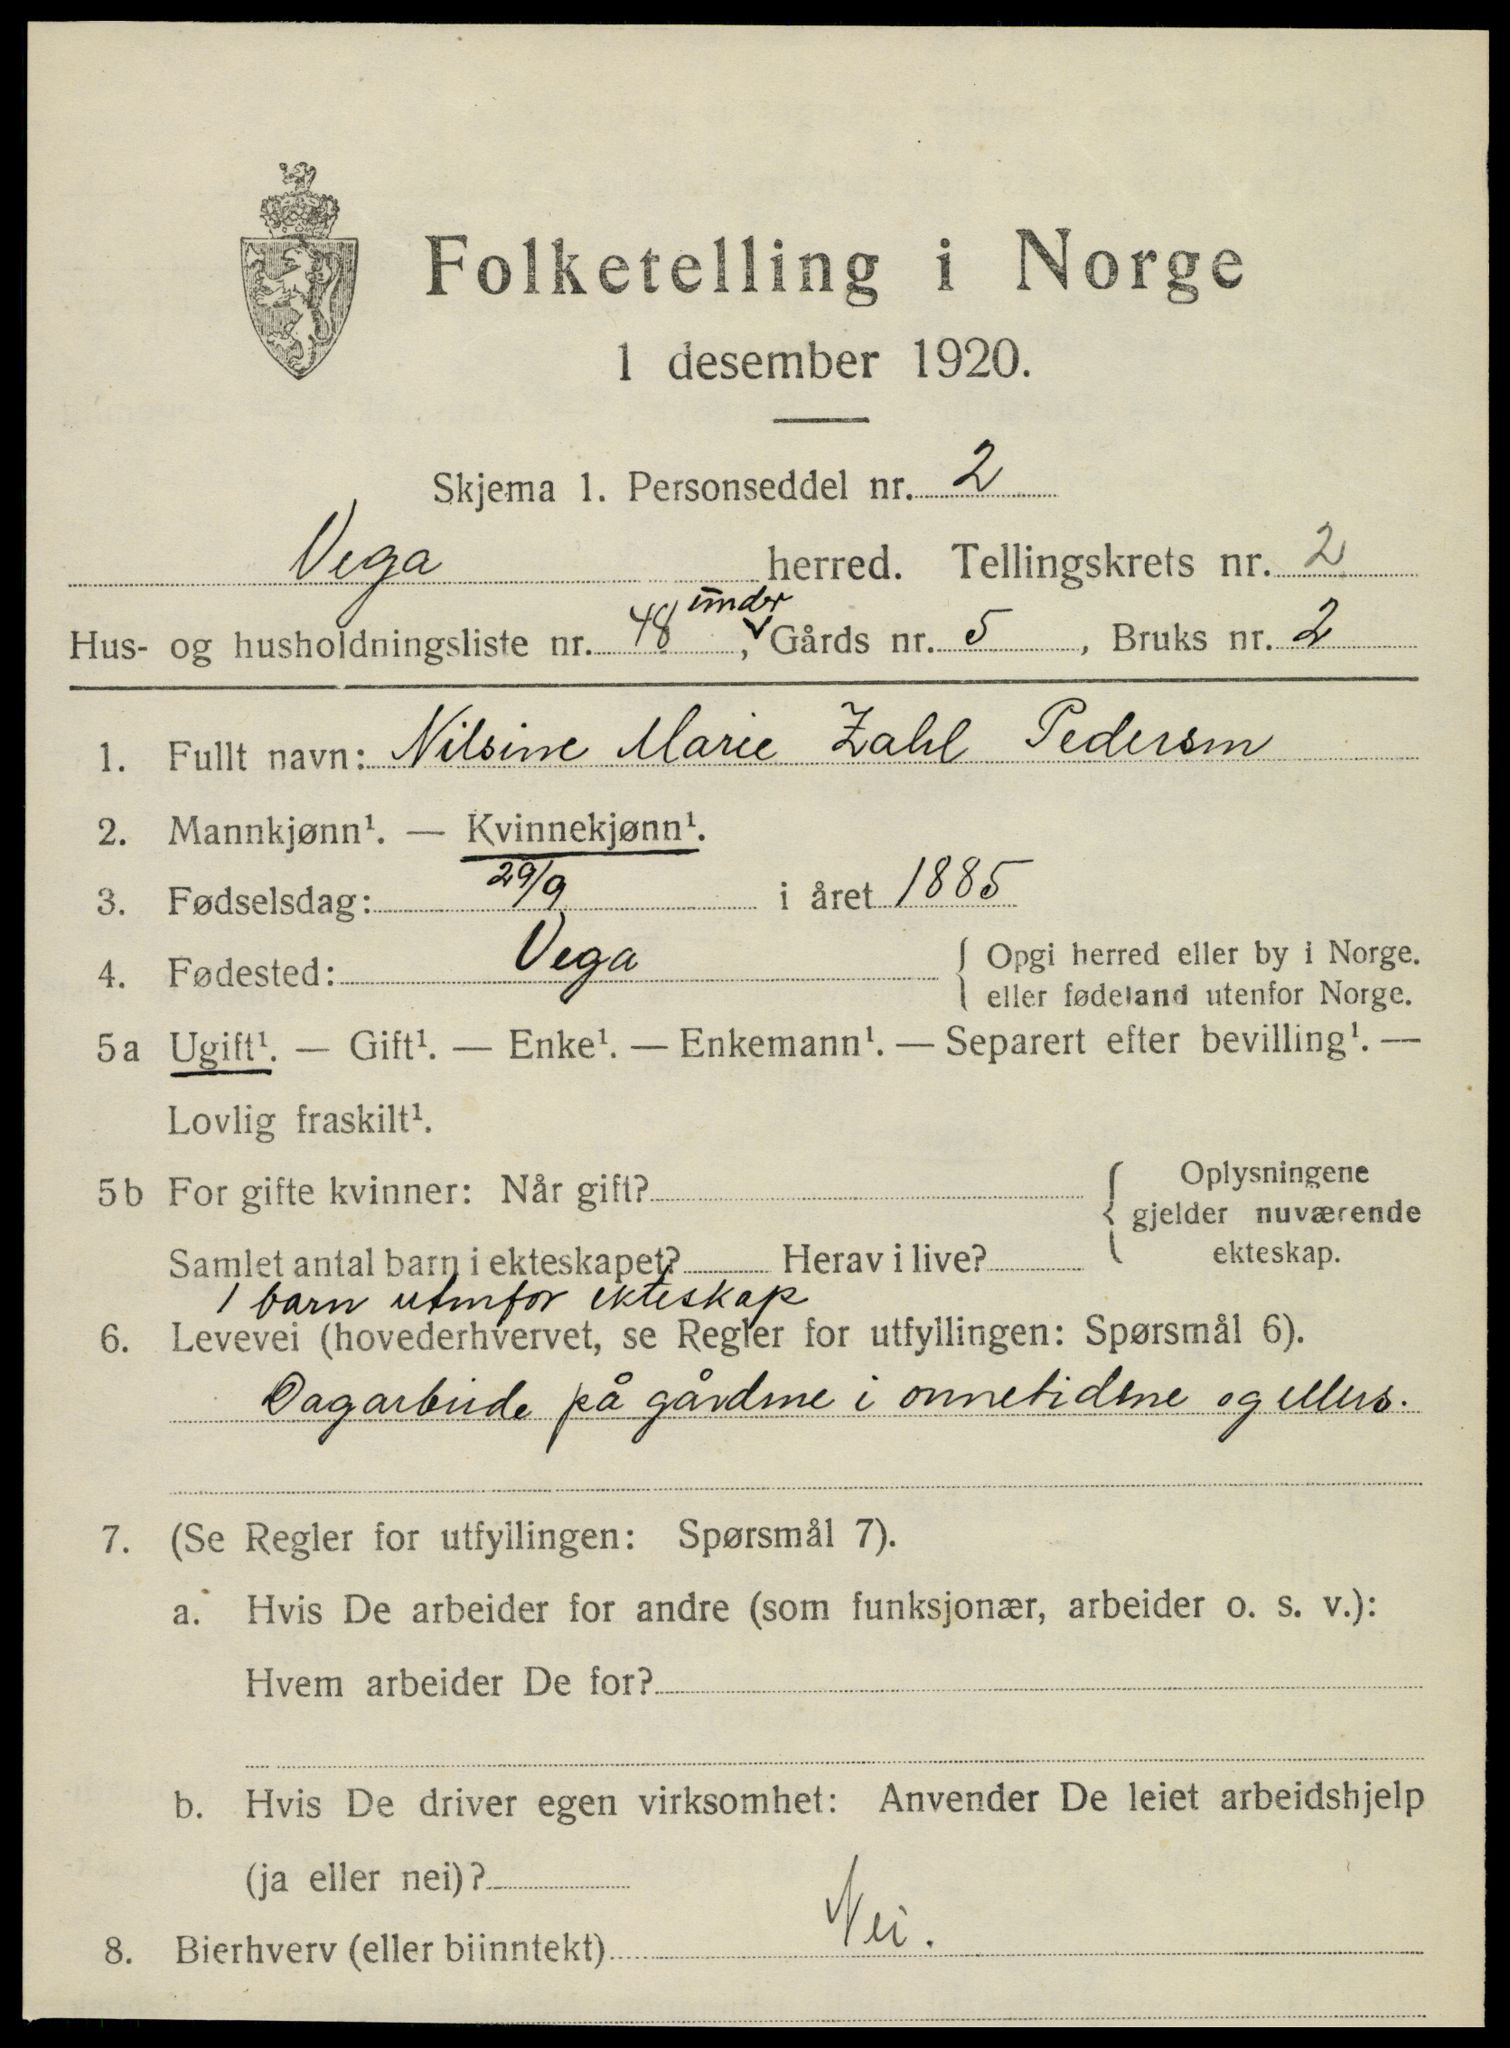 Folketelling i Norge
1 desember 1920.
Skjema 1. Personseddel nr. 2
Vega herred. Tellingskrets nr. 2
under
Hus- og husholdningsliste nr. 48, Gårds nr. 5, Bruks nr. 2
1. Fullt navn: Nilsine Marie Zahl Pedersen
2. Mannkjønn¹. — Kvinnekjønn¹.
3. Fødselsdag: 29/9 i året 1885
4. Fødested: Vega { Opgi herred eller by i Norge.
eller fødeland utenfor Norge.
5a Ugift¹. — Gift¹. — Enke¹. — Enkemann¹. — Separert efter bevilling¹. —
Lovlig fraskilt¹.
5b For gifte kvinner: Når gift? { Oplysningene
gjelder nuværende
ekteskap.
Samlet antal barn i ekteskapet? Herav i live?
1 barn utenfor ekteskap
6. Levevei (hovederhvervet, se Regler for utfyllingen: Spørsmål 6).
Dagarbeide på gårdene i onnetidene og ellers.
7. (Se Regler for utfyllingen: Spørsmål 7).
a. Hvis De arbeider for andre (som funksjonær, arbeider o. s. v.):
Hvem arbeider De for?
b. Hvis De driver egen virksomhet: Anvender De leiet arbeidshjelp
(ja eller nei)?
8. Bierhverv (eller biinntekt) Nei.